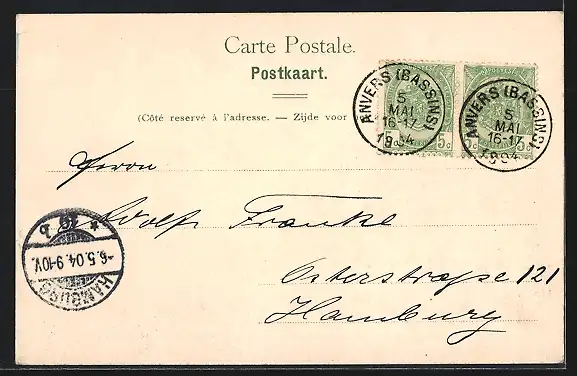 Carte Postale.
Postkaart.
(Côté reservé à l'adresse. — Zijde voor
ANVERS (BASSINS)
5
MAI
16-17
1904
ANVERS (BASSINS)
5
MAI
16-17
1904
5c 5c
Herrn
Wolf Franke
Osterstrasse 121
Hamburg
HAMBURG
6.5.04.9-10V.